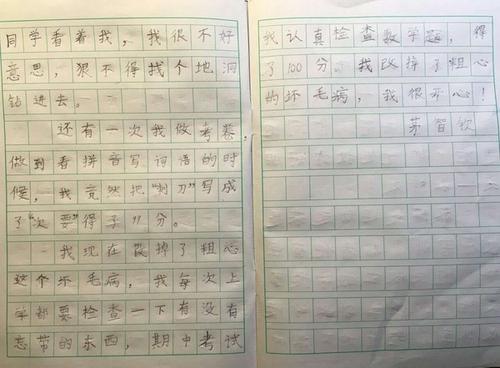 同学看着我，我很不好
意思，狠不得找个地洞
钻进去。
还有一次我做考卷，
做到看拼音写词语的时
候，我竟然把“刺刀”写成
了“次要”得了分。
我现在改掉了粗心
这个坏毛病，我每次上
学都要检查一下有没有
忘带的东西，期中考试
我认真检查数学题，得
了100分。我改掉了粗心
的坏毛病，我很开心！
茅智钦